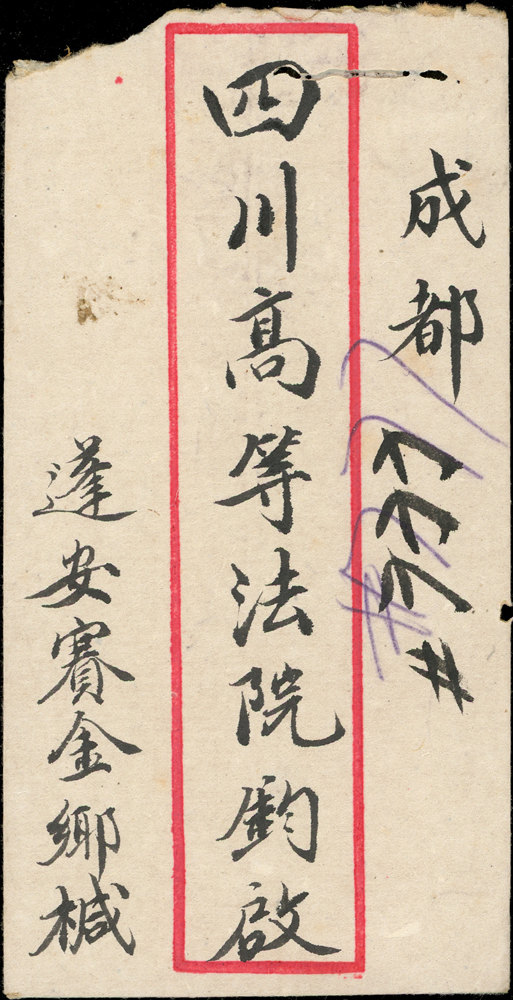 成都
四川高等法院鈞啟
蓬安賽金鄉椷